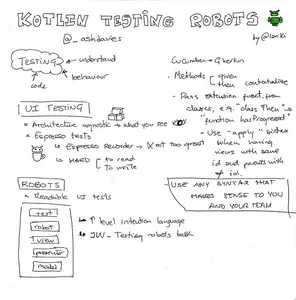 KOTLIN TESTING ROBOTS
@_ashdavies
by @lariki
TESTING
understand
behaviour
code
UI TESTING
* Architecture agnostic → what you see
* Espresso tests
→ Espresso Recorder → X not too great
→ HARD → to read
→ to write
ROBOTS
* Readable UI tests
test
robot
view
presenter
model
→ ↑ level intention language
→ JW - Testing robots talk
Cucumber + Gherkin
- Methods
given
then
- Pass extention funct. from
classes, e.g. "class Then" →
"function hasProgressed"
- Use "apply" syntax
when having
views with same
id and parents with
≠ id.
- USE ANY SYNTAX THAT
MAKES SENSE TO YOU
AND YOUR TEAM